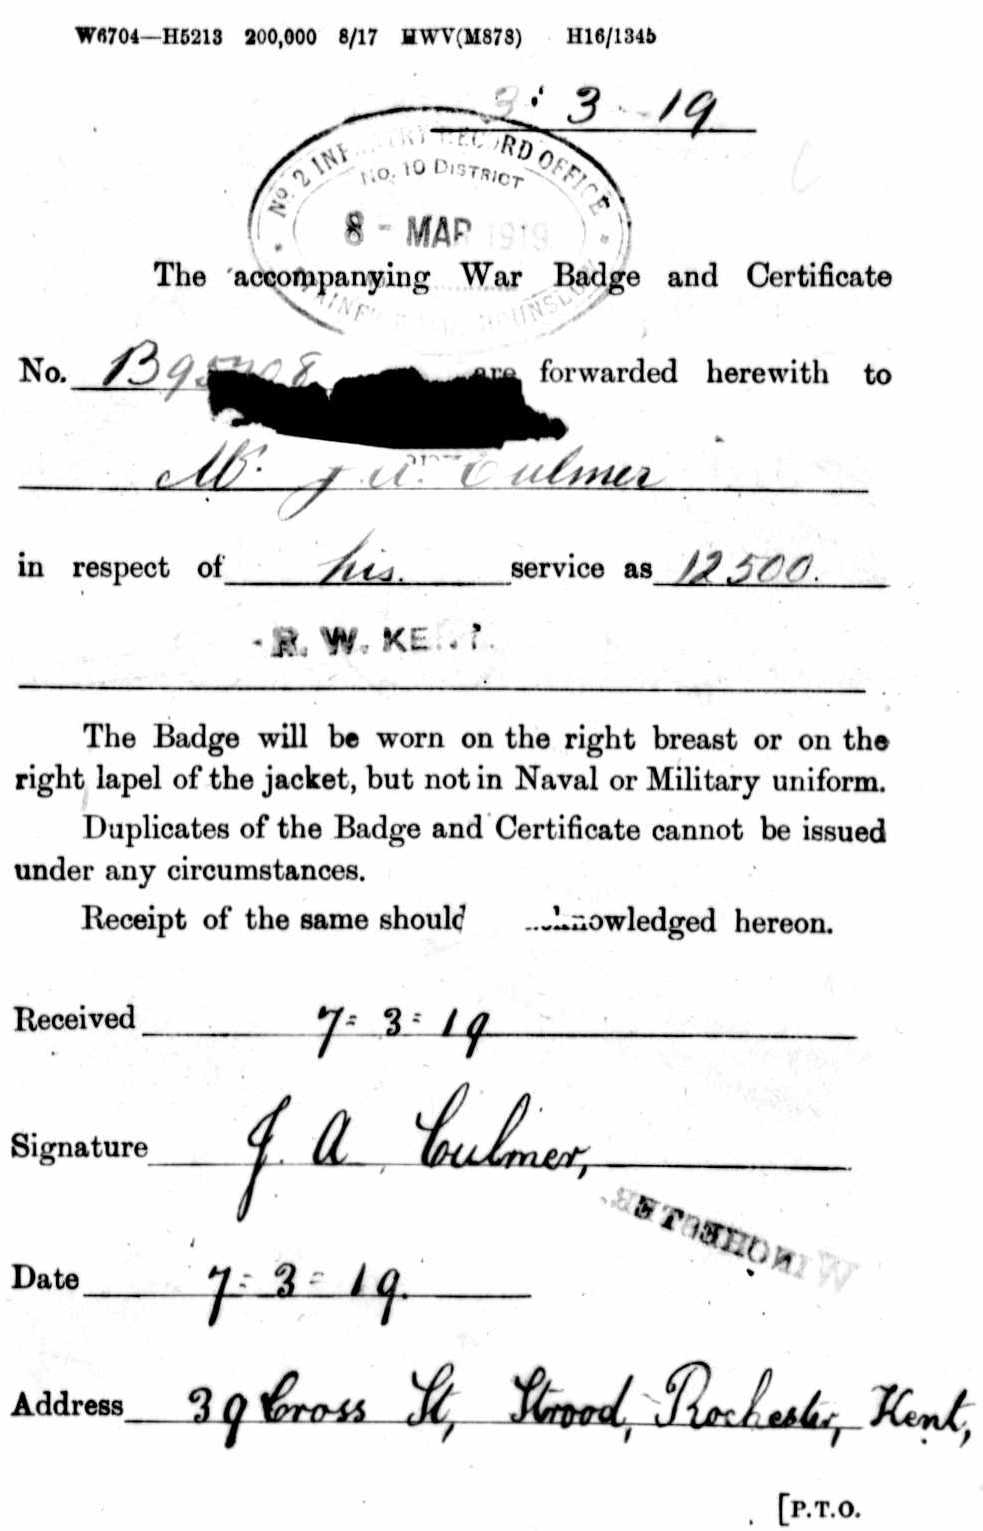 W6704—H5213 200,000 8/17 HWV(M878) H16/1345
3 : 3 - 19
No. 2 INFANTRY RECORD OFFICE
No. 10 DISTRICT
8 - MAR 1919
HOUNSLOW
The accompanying War Badge and Certificate
No. B95708 are forwarded herewith to
Mr. J. A. Culmer
in respect of his. service as 12500.
R. W. KENT.
The Badge will be worn on the right breast or on the
right lapel of the jacket, but not in Naval or Military uniform.
Duplicates of the Badge and Certificate cannot be issued
under any circumstances.
Receipt of the same should acknowledged hereon.
Received 7 = 3 = 19
Signature J. A. Culmer,
WINCHESTER
Date 7 = 3 = 19.
Address 39 Cross St, Strood, Rochester, Kent,
[P.T.O.